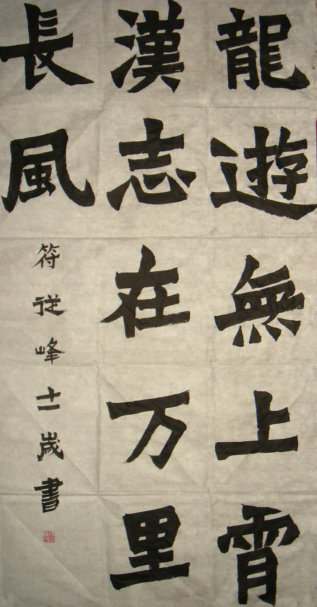 龍遊無上霄
漢志在万里
長風
符從峰十一歲書